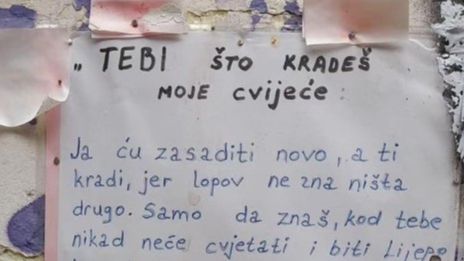 „ TEBI ŠTO KRADEŠ
MOJE cvijeće :
Ja ću zasaditi novo, a ti
kradi, jer lopov ne zna ništa
drugo. Samo da znaš, kod tebe
nikad neće cvjetati i biti Lijepo